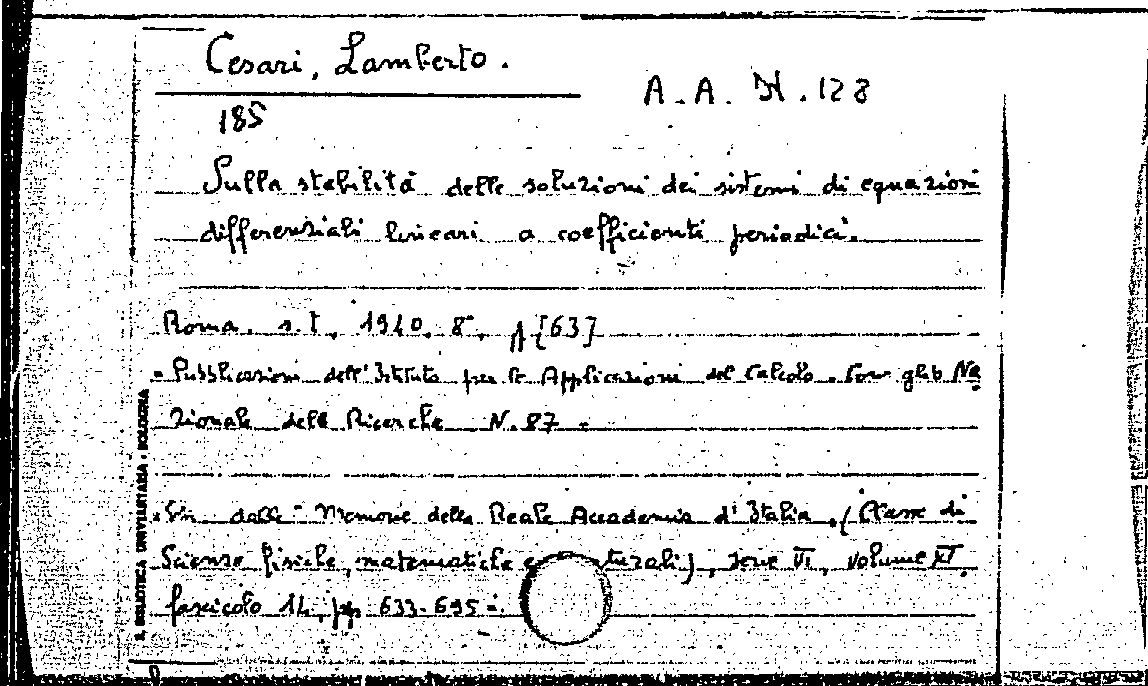 Cesari, Lamberto.
A. A. N. 128
185
Sulla stabilità delle soluzioni dei sistemi di equazioni
differenziali lineari a coefficienti periodici.
Roma. s.t, 1940. 8°, p [63]
- Pubblicazioni dell'Istituto per le Applicazioni del Calcolo. Consiglio Na
zionale delle Ricerche N. 87 -
dalle Memorie della Reale Accademia d'Italia. (Classe di
Scienze fisiche, matematiche e naturali), serie VI, volume XI,
fascicolo 14, pp 633-695 -
BIBLIOTECA UNIVERSITARIA - BOLOGNA